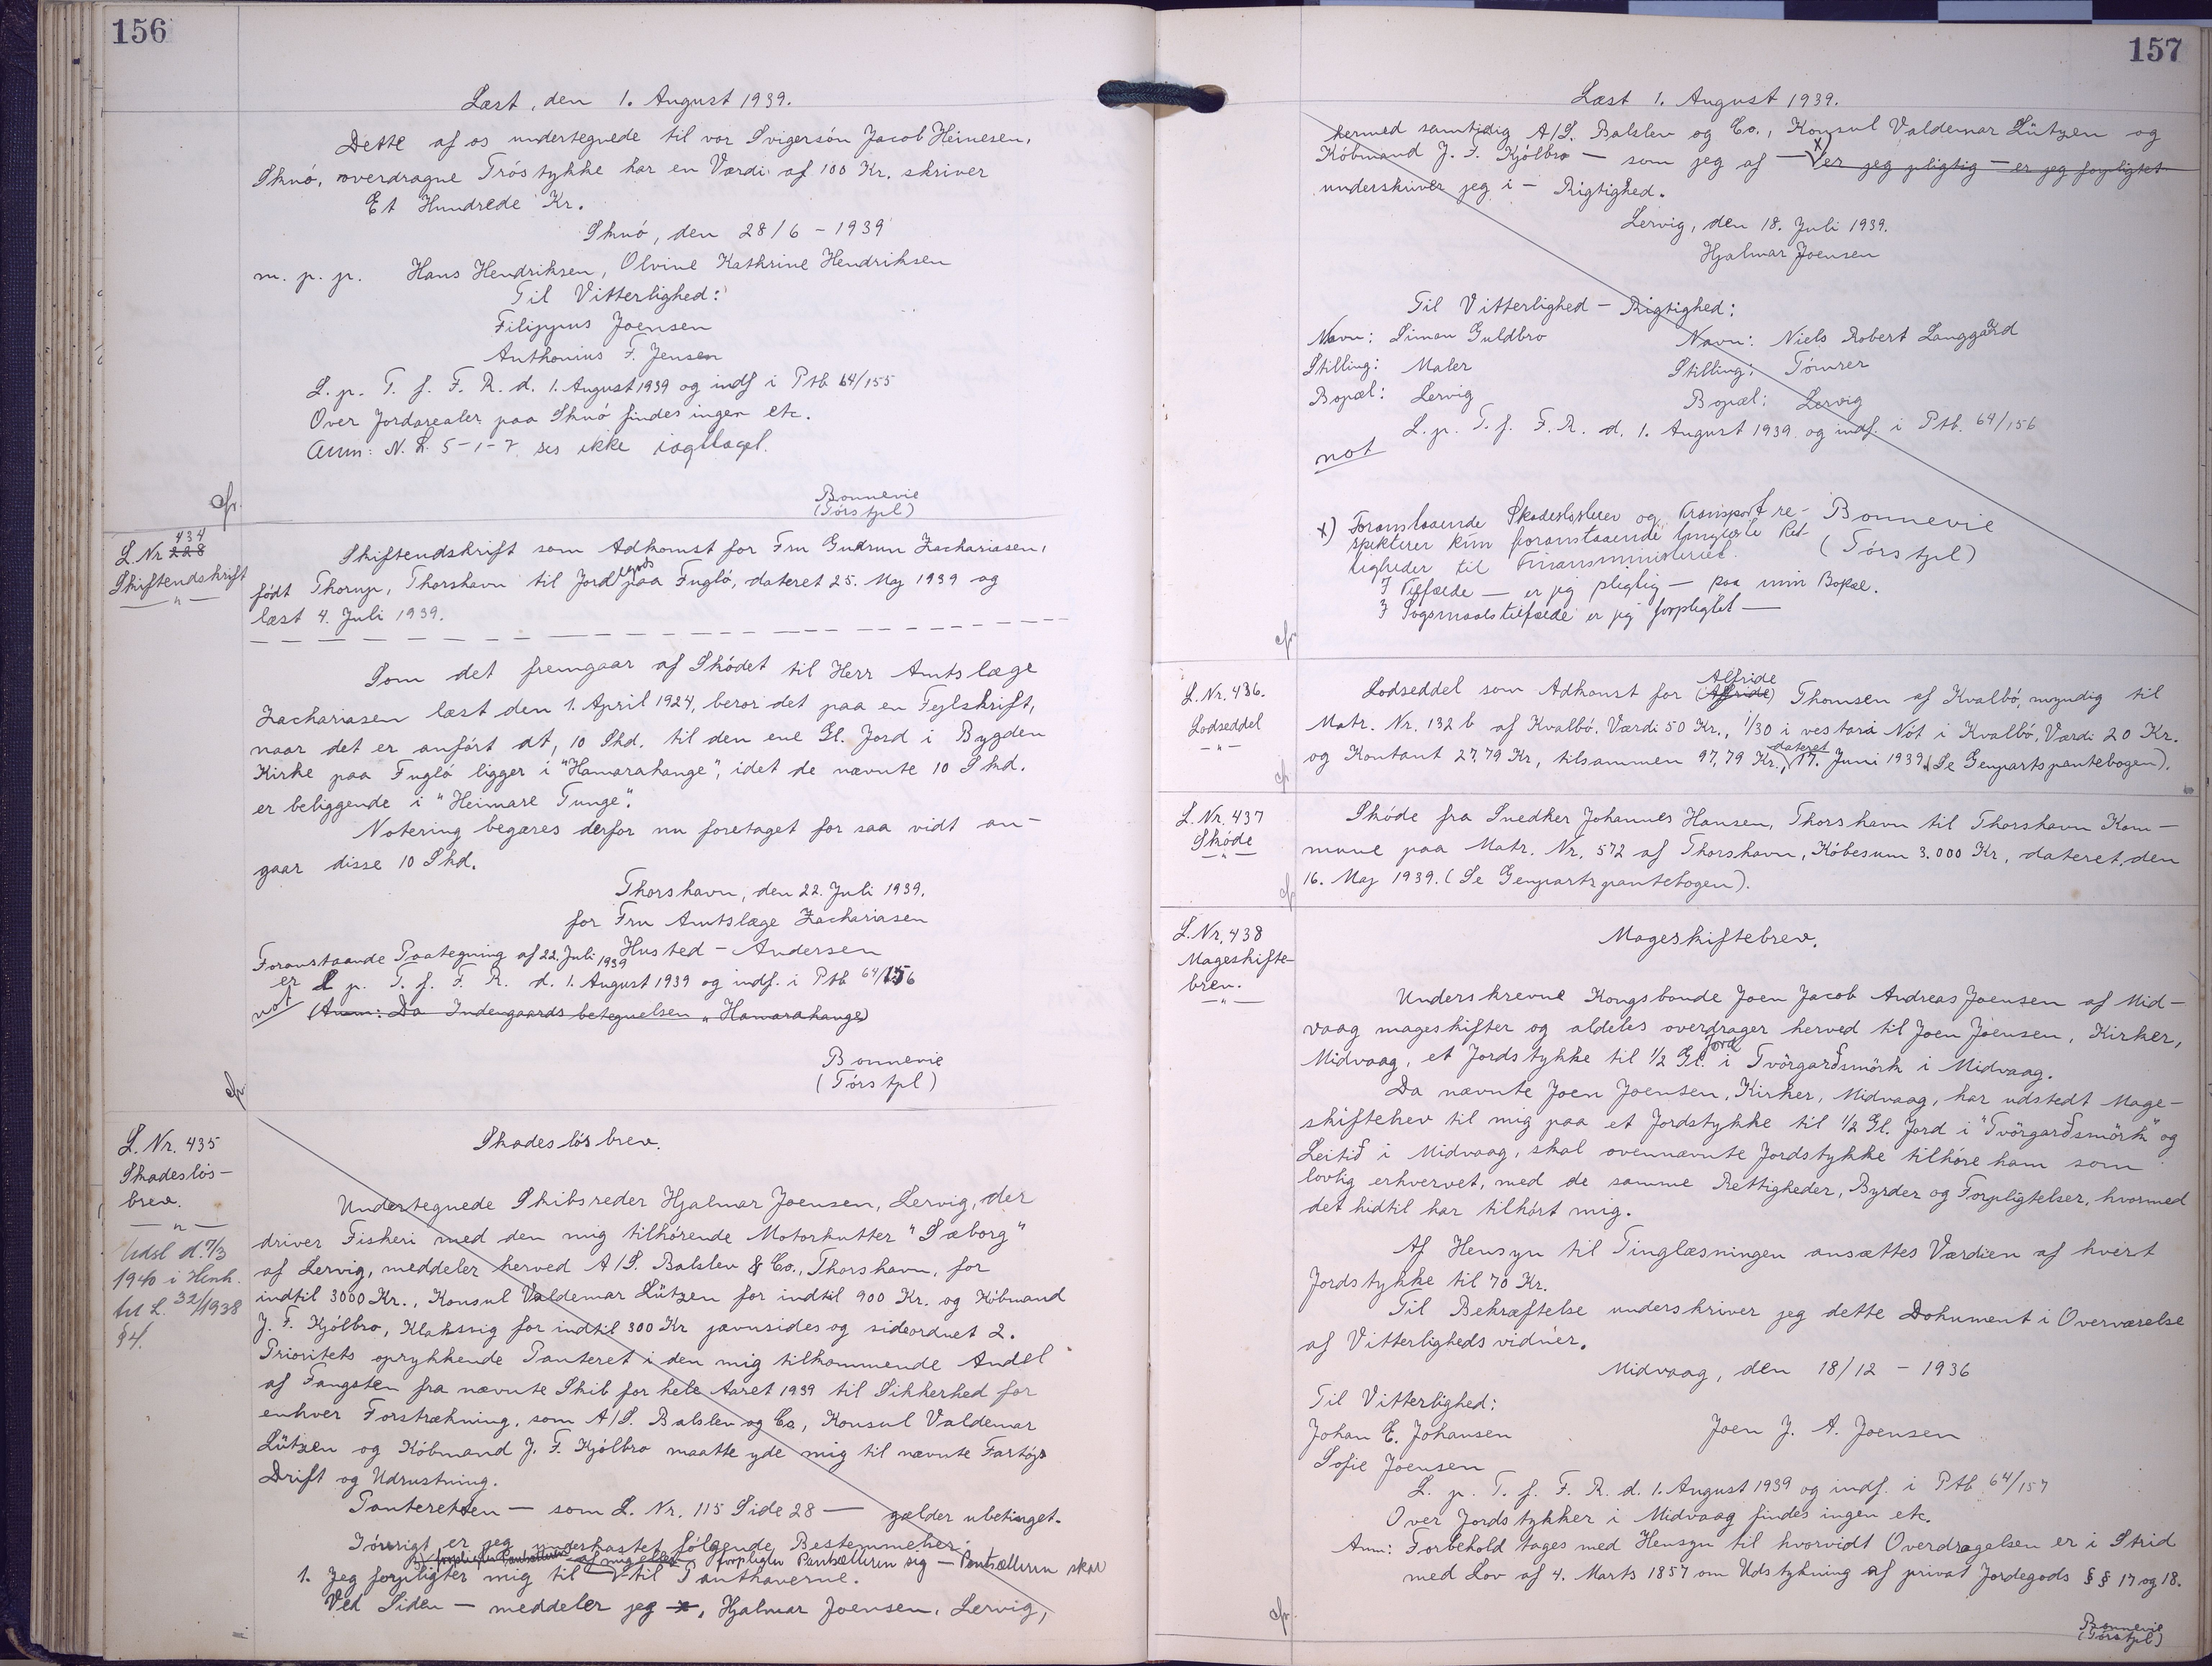 156
Læst, den 1. August 1939.
Dette af os undertegnede til vor Svigersön Jacob Heinesen,
Skuó, overdragne Tróstykke har en Værdi af 100 Kr. skriver
Et Hundrede Kr.
Skuó, den 28/6 - 1939
m. p. p. Hans Hendriksen, Olvine Kathrine Hendriksen
Til Vitterlighed:
Filippus Joensen
Anthonius F. Jensen
L. p. T. f. F. R. d. 1. August 1939 og indf i Ptb 64/155
Over Jordarealer paa Skuó findes ingen etc.
Anm: N. L. 5-1-7 ses ikke iagttaget.
Bonnevie
(Tórstpl)
cfr.
L. Nr 228 434
Skifteudskrift
— " —
Skifteudskrift som Adkomst for Fru Gudrun Zachariasen,
födt Thorup, Thorshavn til Jordegods paa Fugló, dateret 25. Maj 1939 og
læst 4. Juli 1939.
Som det fremgaar af Skódet til Herr Amtslæge
Zachariasen læst den 1. April 1924, beror det paa en Fejlskrift,
naar det er anfórt at, 10 Skd. til den ene Gl. Jord i Bygden
Kirke paa Fugló ligger i "Hamarahange", idet de nævnte 10 Skd.
er beliggende i "Heimare Tunge".
Notering begæres derfor nu foretaget for saa vidt an-
gaar disse 10 Skd.
Thorshavn, den 22. Juli 1939.
for Fru Amtslæge Zachariasen
Husted - Andersen
Foranstaaende Paategning af 22. Juli 1939
er L p. T. f. F. R. d. 1. August 1939 og indf. i Ptb 64/156
not (Anm: Da Indengaards betegnelsen "Hamarahange)
Bonnevie
(Tórstpl)
cfr
L. Nr. 435
Skadeslós-
brev.
— " —
Udsl d. 7/3
1940 i Henh.
til L. 32/1938
§4.
Skadeslós brev.
Undertegnede Skibsreder Hjalmar Joensen, Lervig, der
driver Fiskeri med den mig tilhórende Motorkutter "Sæborg"
af Lervig, meddeler herved A/S. Balslev & Co., Thorshavn, for
indtil 3000 Kr., Konsul Valdemar Lützen for indtil 900 Kr. og Kóbmand
J. F. Kjólbro, Klaksvig for indtil 300 Kr jævnsides og sideordnet 2.
Prioritets oprykkende Panteret i den mig tilkommende Andel
af Fangsten fra nævnte Skib for hele Aaret 1939 til Sikkerhed for
enhver Forstrækning, som A/S. Balslev og Co, Konsul Valdemar
Lützen og Kóbmand J. F. Kjólbro maatte yde mig til nævnte Fartójs
Drift og Udrustning.
Panteretten — som L. Nr. 115 Side 28 — gælder ubetinget.
Ióvrigt er jeg underkastet fólgende Bestemmelser:
af mig eller forpligter Pantsætteren sig — Pantsætteren skal
1. Jeg forpligter mig til — til Panthaverne.
Ved Siden — meddeler jeg, Hjalmar Joensen, Lervig,
157
Læst 1. August 1939.
hermed samtidig A/S. Balslev og Co., Konsul Valdemar Lützen og
Kóbmand J. F. Kjólbro — som jeg af — x) er jeg pligtig — er jeg forpligtet
underskriver jeg i — Rigtighed.
Lervig, den 18. Juli 1939.
Hjalmar Joensen
Til Vitterlighed — Rigtighed:
Navn: Simon Guldbro Navn: Niels Robert Langgård
Stilling: Maler Stilling: Tómrer
Bopæl: Lervig Bopæl: Lervig
L. p. T. f. F. R. d. 1. August 1939 og indf. i Ptb. 64/156
not
x) Foranstaaende Skadeslósbrev og Transport re-
spekterer kun foranstaaende tinglæste Ret-
tigheder til Finansministeriet.
Bonnevie
(Tórstpl)
I Tilfælde — er jeg pligtig — paa min Bopæl.
I Sögsmaalstilfælde er jeg forpligtet —
cfr.
L. Nr. 436.
Lodseddel
— " —
Lodseddel som Adkomst for (Alfride) Alfride Thomsen af Kvalbö, myndig til
Matr. Nr. 132 b af Kvalbö. Værdi 50 Kr., 1/30 i vestara Nót i Kvalbó, Værdi 20 Kr.
og Kontant 27,79 Kr, tilsammen 97,79 Kr., dateret 17. Juni 1939. (Se Genpartspantebogen).
cfr
L. Nr. 437
Skóde
— " —
Skóde fra Snedker Johannes Hansen, Thorshavn til Thorshavn Kom-
mune paa Matr. Nr. 572 af Thorshavn, Kóbesum 3.000 Kr, dateret den
16. Maj 1939. (Se Genpartspantebogen).
cfr
L. Nr. 438
Mageskifte-
brev.
— " —
Mageskiftebrev.
Underskrevne Kongsbonde Joen Jacob Andreas Joensen af Mid-
vaag mageskifter og aldeles overdrager herved til Joen Joensen, Kirker,
Midvaag, et Jordstykke til 1/2 Gl. Jord i Tvörgarðsmörk i Midvaag.
Da nævnte Joen Joensen, Kirker, Midvaag, har udstedt Mage-
skiftebrev til mig paa et Jordstykke til 1/2 Gl. Jord i "Tvörgarðsmörk" og
Leitið i Midvaag, skal ovennævnte Jordstykke tilhóre ham som
lovlig erhvervet, med de samme Rettigheder, Byrder og Forpligtelser, hvormed
det hidtil har tilhórt mig.
Af Hensyn til Tinglæsningen ansættes Værdien af hvert
Jordstykke til 70 Kr.
Til Bekræftelse underskriver jeg dette Dokument i Overværelse
af Vitterligheds vidner.
Midvaag, den 18/12 - 1936
Til Vitterlighed:
Johan E. Johansen Joen J. A. Joensen
Sofie Joensen
L. p. T. f. F. R. d. 1. August 1939 og indf. i Ptb 64/157
Over Jordstykker i Midvaag findes ingen etc.
Anm: Forbehold tages med Hensyn til hvorvidt Overdragelsen er i Strid
med Lov af 4. Marts 1857 om Udstykning af privat Jordegods §§ 17 og 18.
cfr.
Bonnevie
(Tórstpl)